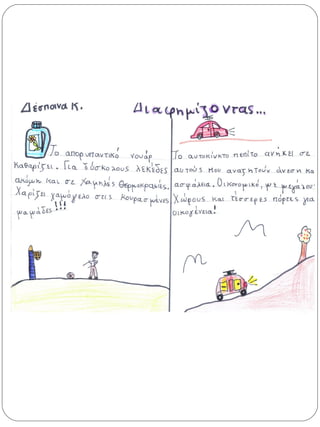 Δέσποινα Κ.
Διαφημίζοντας...
Το απορυπαντικό νουάρ
καθαρίζει. Για δύσκολους λεκέδες
ακόμη και σε χαμηλές θερμοκρασίες.
Χαρίζει χαμόγελο στις κουρασμένες
μαμάδες!!!
Το αυτοκίνητο πεπίτο ανήκει σε
αυτούς που αναζητούν άνεση κα
ασφάλεια. Οικονομικό, με μεγάλους
χώρους και τέσσερες πόρτες για
οικογένεια!